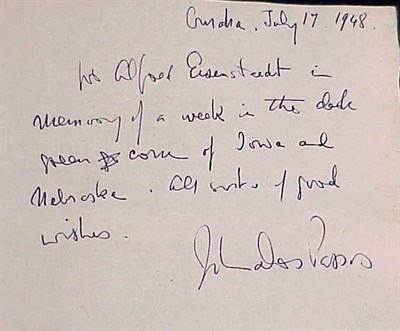 Omaha, July 17 1948.
for Alfred Eisenstaedt in
memory of a week in the dark
green corn of Iowa and
Nebraska. All sorts of good
wishes.
John Dos Passos